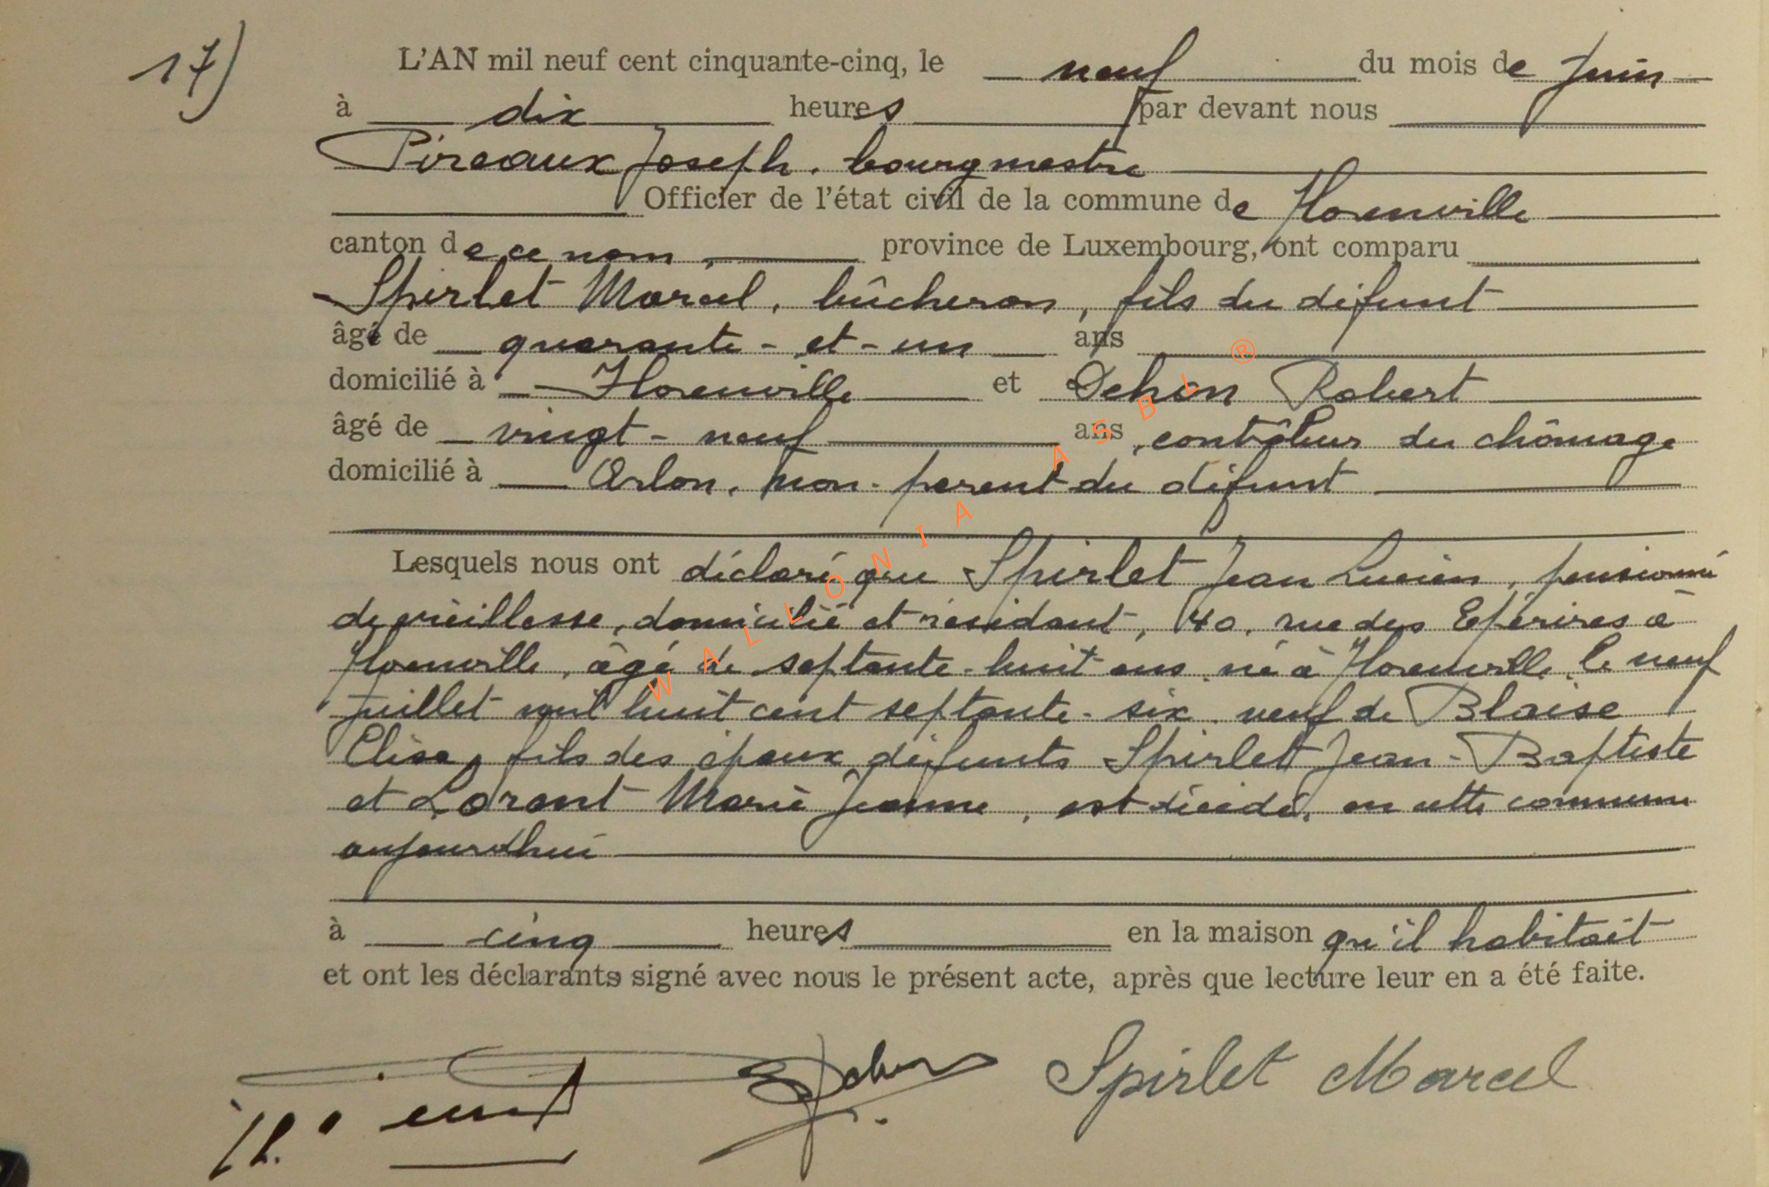 17)
L'AN mil neuf cent cinquante-cinq, le neuf du mois de Juin
à dix heures par devant nous
Pireaux Joseph, bourgmestre
Officier de l'état civil de la commune de Florenville
canton de ce nom, province de Luxembourg, ont comparu
Spirlet Marcel, bûcheron, fils du défunt
âgé de quarante-et-un ans
domicilié à Florenville et Dehon Robert
âgé de vingt-neuf ans, contrôleur du chômage
domicilié à Arlon, non-parent du défunt
Lesquels nous ont déclaré que Spirlet Jean Lucien, pensionné
de vieillesse, domicilié et résidant, 40, rue des Epérires à
Florenville, âgé de septante-huit ans, né à Florenville, le neuf
Juillet mil huit cent septante-six, veuf de Blaise
Elisa, fils des époux défunts Spirlet Jean-Baptiste
et Lorant Marie Jeanne, est décédé, en cette commune
aujourd'hui
à cinq heures en la maison qu'il habitait
et ont les déclarants signé avec nous le présent acte, après que lecture leur en a été faite.
Spirlet Marcel
WALLONIA ASBL ®